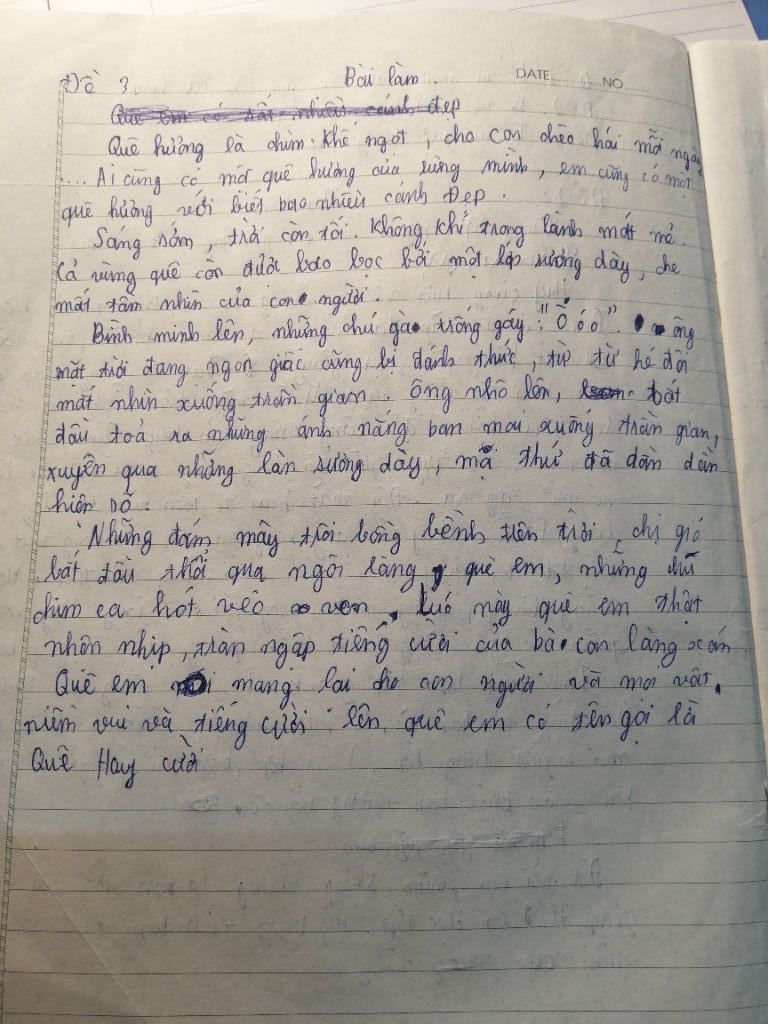 Đề 3 Bài làm. DATE NO
Quê em có rất nhiều cảnh đẹp
Quê hương là chùm khế ngọt, cho con chèo hái mỗi ngày
.... Ai cũng có một quê hương của riêng mình, em cũng có một
quê hương với biết bao nhiêu cảnh Đẹp.
Sáng sớm, trời còn tối. Không khí trong lành mát mẻ.
Cả vùng quê còn được bao bọc bởi một lớp sương dày, che
mất tầm nhìn của con người.
Bình minh lên, những chú gà trống gáy: "Ò ó o". ông
mặt trời đang ngon giấc cũng bị đánh thức, từ từ hé đôi
mắt nhìn xuống trần gian. ông nhô lên, bắt
đầu toả ra những ánh nắng ban mai xuống trần gian,
xuyên qua những làn sương dày, mọi thứ đã dần dần
hiện rõ.
Những đám mây trôi bồng bềnh trên trời, chị gió
bắt đầu thổi qua ngôi làng quê em, những chú
chim ca hót véo von. Lúc này quê em thật
nhộn nhịp, tràn ngập tiếng cười của bà con làng xóm
Quê em mang lại cho con người và mọi vật
niềm vui và tiếng cười lên quê em có tên gọi là
Quê Hay cười